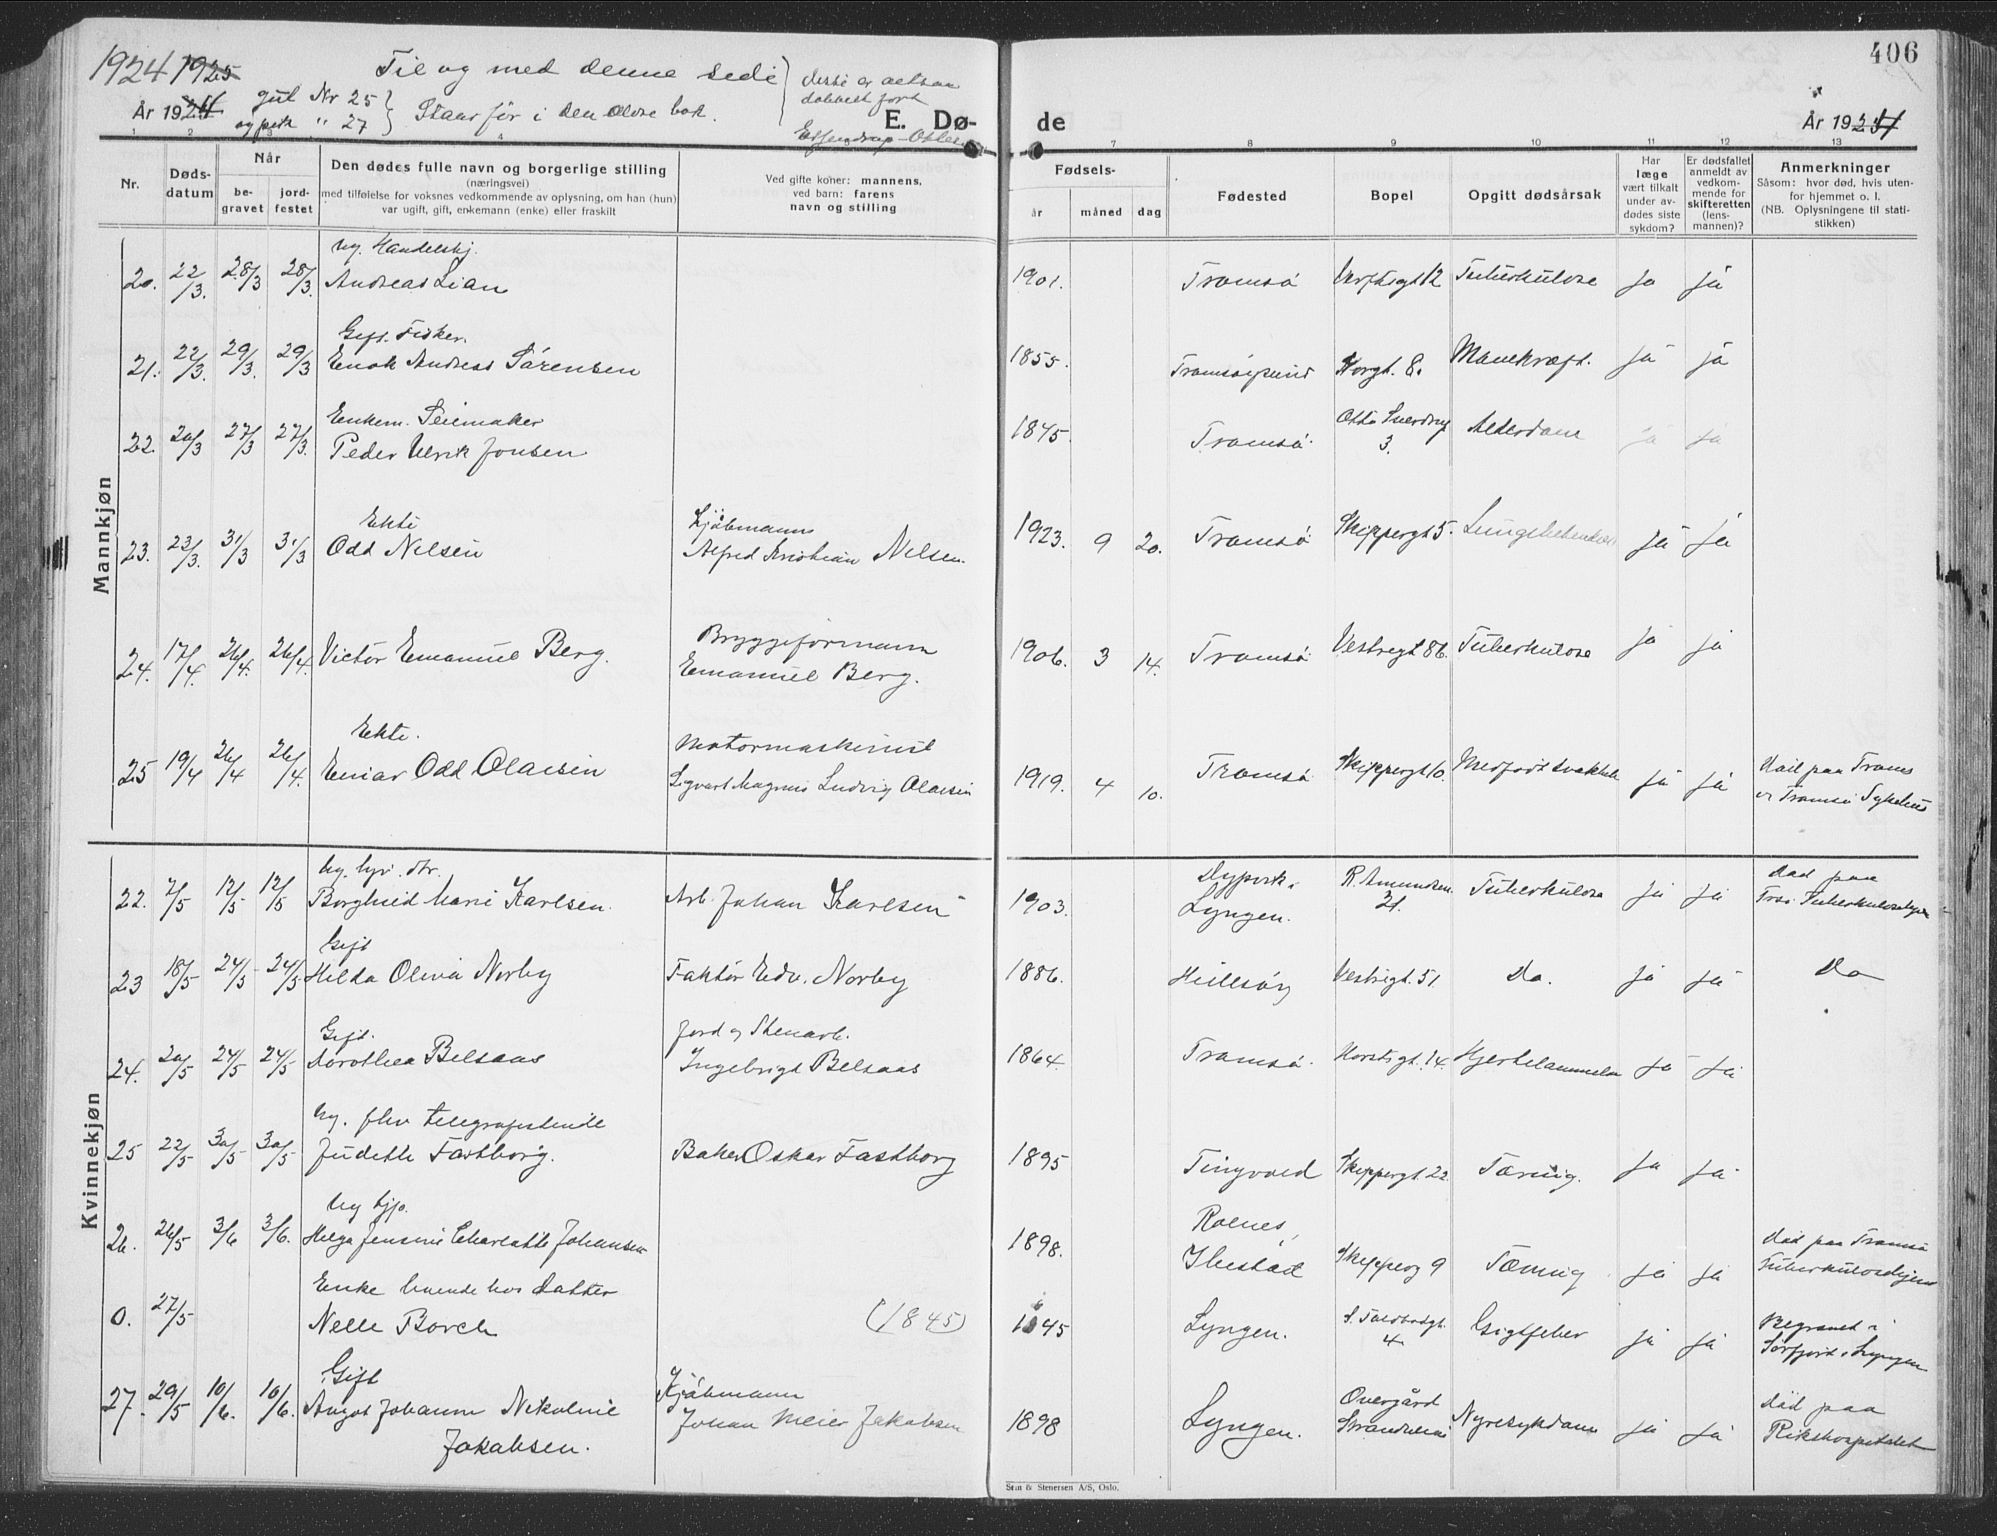 406
1924 1925
År 1924
Til og med denne side
gut Nr 25
og pike " 27
Staar før i den eldre bok.
Disse er altsaa
dobbelt ført
E. Dø-
de
År 1924
1 2 3 4 5
7 8 9 10 11 12 13
Nr.
Døds-
datum
Når
be-
gravet
jord-
festet
Den dødes fulle navn og borgerlige stilling
(næringsvei)
med tilføielse for voksnes vedkommende av oplysning, om han (hun)
var ugift, gift, enkemann (enke) eller fraskilt
Ved gifte koner: mannens,
ved barn: farens
navn og stilling
Fødsels-
år
måned
dag
Fødested
Bopel
Opgitt dødsårsak
Har
læge
vært tilkalt
under av-
dødes siste
sykdom?
Er dødsfallet
anmeldt av
vedkom-
mende for
skifteretten
(lens-
mannen)?
Anmerkninger
Såsom: hvor død, hvis uten-
for hjemmet o. l.
(NB. Oplysningene til stati-
stikken)
Mannkjøn
ug. Handelsbj.
20. 22/3. 28/3 28/3. Andreas Lian 1901. Tromsø Verftsgt 12 Tuberkulose ja ja
Gift. Fisker.
21. 22/3. 29/3. 29/3 Enok Andreas Sørensen 1855. Tromsøysund Storgt. 8. Mavekræft. ja ja
Enkem. Seilmaker
22. 20/3 27/3 27/3. Peder Ulrik Jonsen 1845. Tromsø. Otto Sverdrup 3. Alderdom ja ja
Ekte Kjøbmann
23. 23/3. 31/3 31/3 Odd Nilsen Alfred Kristian Nilsen. 1923. 9 20. Tromsø Skippergt 5. Lungebetendelse ja ja
Bryggeformann
24. 17/4. 26/4. 26/4. Victor Emanuel Berg. Emanuel Berg. 1906. 3 14. Tromsø Vestregt 86. Tuberkulose ja ja
Ekte. Motormaskinist
25 19/4 26/4 26/4. Einar Odd Olaisen Sigvart Magnus Ludvig Olaisen 1919. 4 10. Tromsø Skippergt 10. Medfødt svakhet ja ja Død paa Troms
Tromsø Sykehus
Kvinnekjøn
ug. dtr. Dypvik, R. Amundsen. Død paa
22. 7/5 12/5 12/5 Borghild Marie Karlsen. Arb. Johan Karlsen 1903. Lyngen. 21. Tuberkulose ja ja Troms Tuberkulosehjem
Gift
23 18/5 24/5 24/5 Hilda Olivia Norby Faktor Edv. Norby 1886. Hillesøy Vestregt. 51 Do. ja ja Do
Gift. Jord og Stenarb.
24. 20/5 24/5 24/5 Dorothea Belsaas Ingebrigt Belsaas 1864. Tromsø. Storgt. 14. Hjertelammelse ja ja
ug. fhv telegrafistinde
25 22/5 30/5 30/5 Judette Fastborg. Baker Oskar Fastborg 1895 Tingvold Skippergt. 22 Tæring. ja ja
ug Rolnes, Død paa Tromsø
26. 26/5 3/6 3/6. Helga Jensine Charlotte Johansen 1898. Ibestad Skipperg 9 Tæring ja ja Tuberkulosehjem
Enke boende hos datter S. Tollbodgt. Begravet i
0. 27/5 Nelle Borch (1845) 1845 Lyngen. 4. Gigtfeber ja ja Sørfjord i Lyngen
Gift Kjøbmann Overgård Død paa
27. 29/5 10/6. 10/6. Johanne Nikoline Johan Meier Jakobsen 1898 Lyngen. Strandveien Nyresykdom ja ja Rikshospitalet
Jakobsen.
Steen & Stenersen A/S, Oslo.